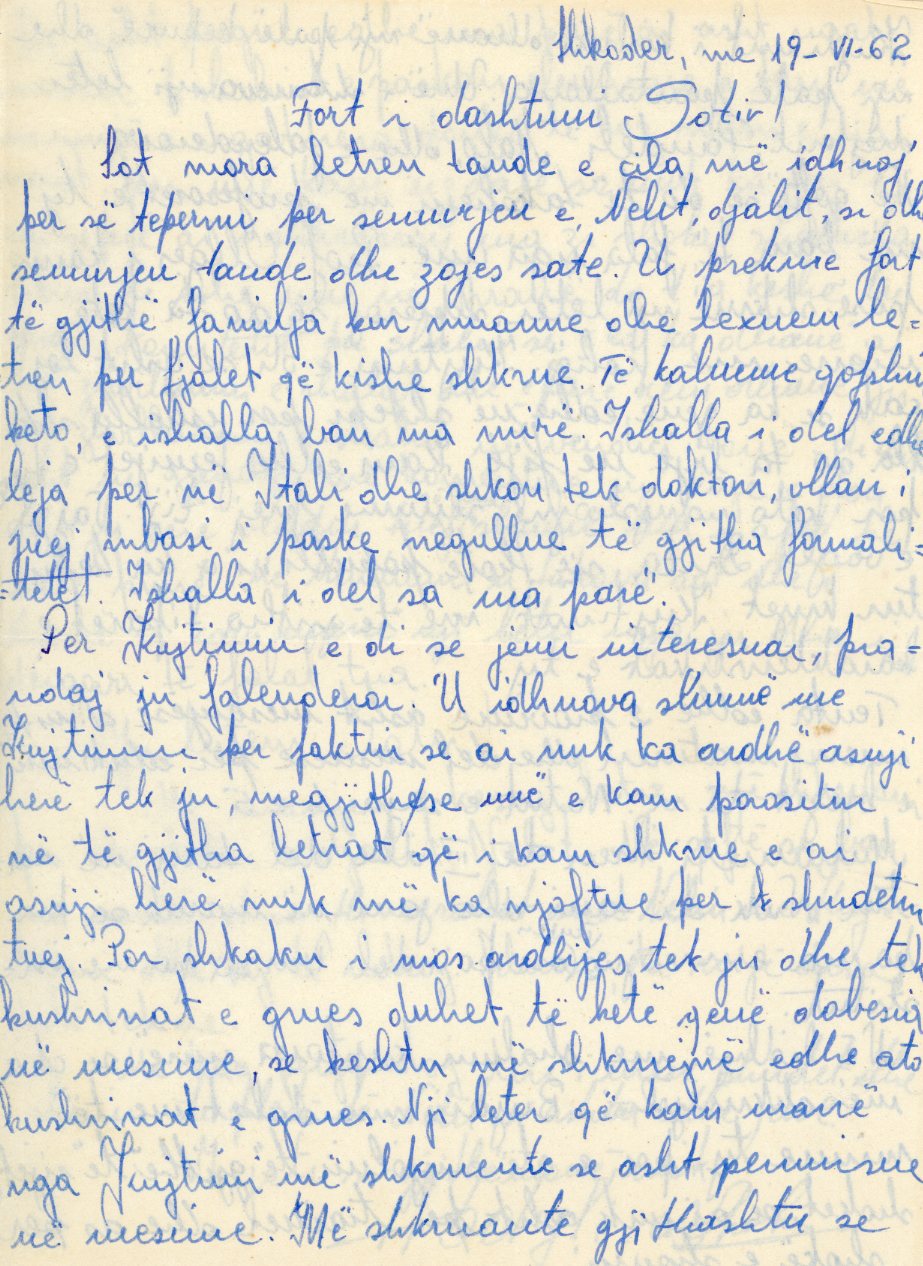 Shkoder, me 19-VI-62
Fort i dashtuni Sotir!
Sot mora letren tande e cila më idhnoj
per së tepermi per semurjen e Nelit, djalit, si dhe
semurjen tande dhe zojes sate. U prekme fort
të gjithë familja kur muarme dhe lexuem le=
tren per fjalet që kishe shkrue. Të kalueme qofshin
keto, e ishalla ban ma mirë. Ishalla i del edhe
leja per në Itali dhe shkon tek doktori, vllau i
juej mbasi i paske regullue të gjitha formali=
=tetet. Ishalla i del sa ma parë.
Per Kujtimin e di se jeni interesuar, pra=
ndaj ju falenderoi. U idhnova shumë me
Kujtimin per faktin se ai nuk ka ardhë asnji
herë tek ju, megjithese unë e kam porositun
në të gjitha letrat që i kam shkrue e ai
asnji herë nuk më ka njoftue per shndetin
tuej. Por shkaku i mos ardhjes tek ju dhe tek
kushrinat e grues duhet të ketë qenë dobesia
në mesime, se keshtu më shkruejnë edhe ato
kushrinat e grues. Nji leter që kam marrë
nga Kujtimi më shkruente se asht permirsue
në mesime. Më shkruante gjithashtu se